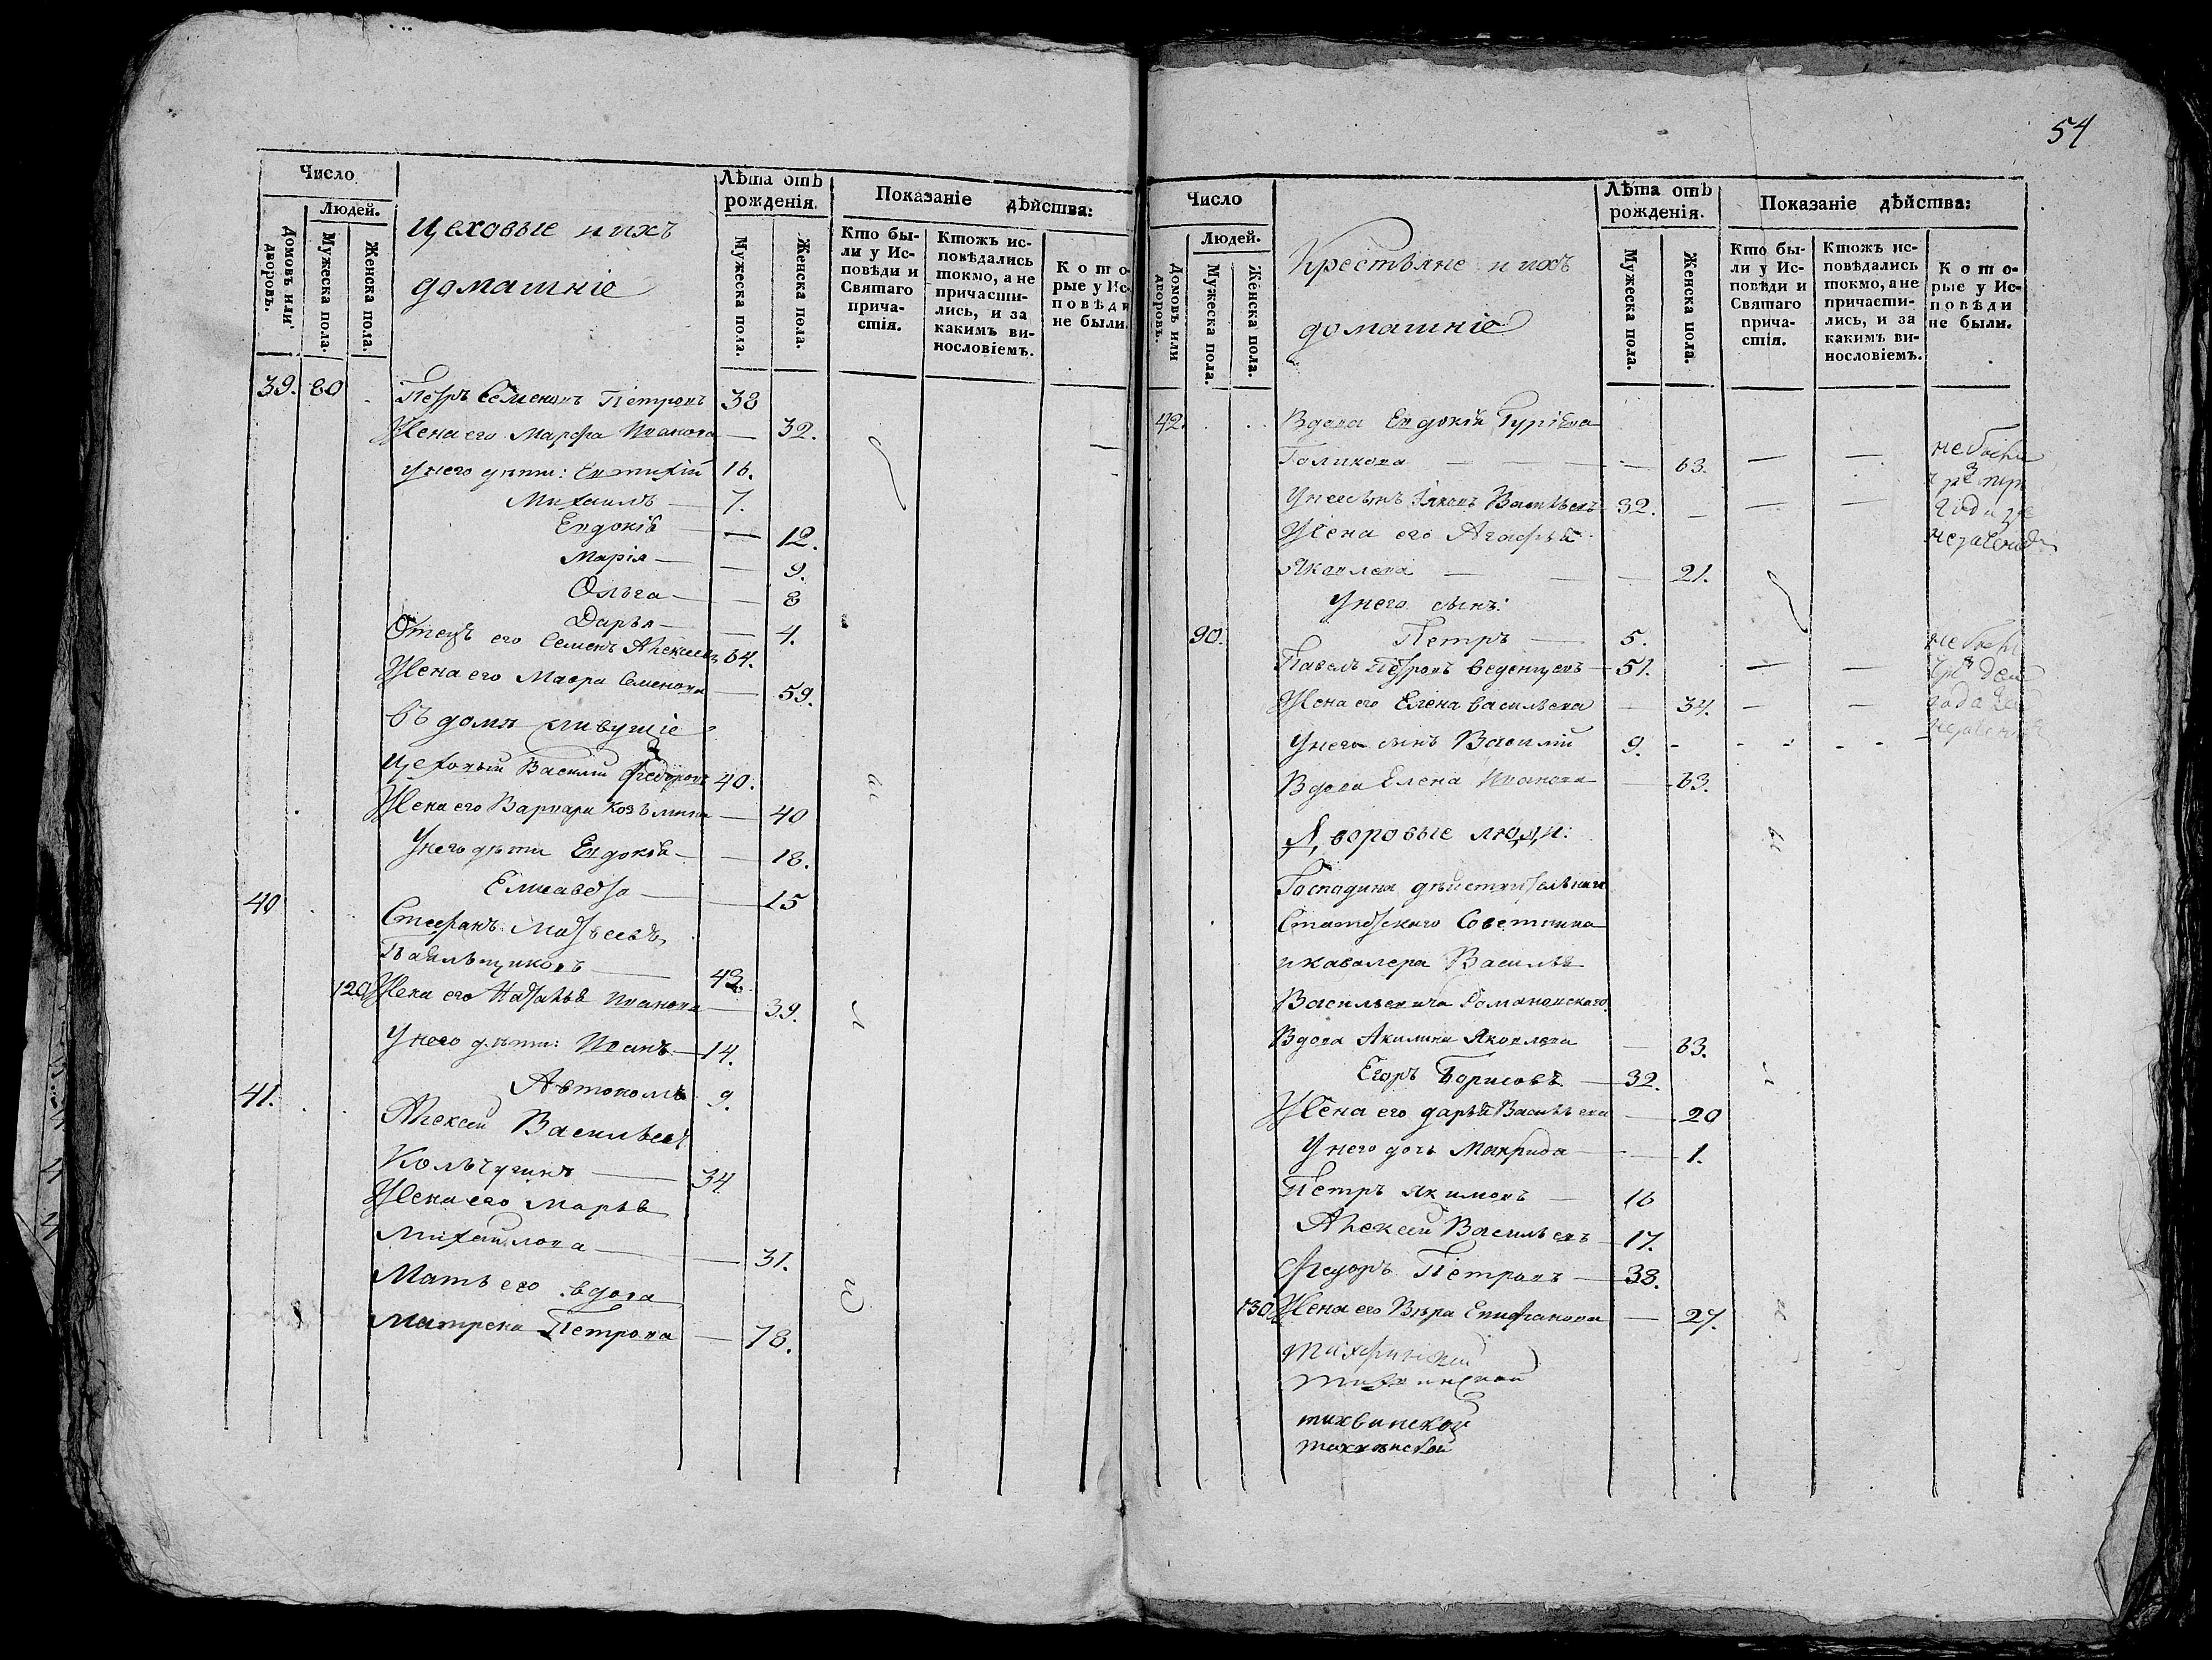 54
Число
Людей.
Домовъ или дворовъ.
Мужеска пола.
Женска пола.
Цеховые и ихъ
домашніе
Лѣта отъ
рожденія.
Мужеска пола.
Женска пола.
Показаніе дѣйства:
Кто бы-
ли у Ис-
повѣди и
Святаго
прича-
стія.
Ктожъ ис-
повѣдались
токмо, а не
причасти-
лись, и за
какимъ ви-
нословіемъ.
Кото-
рые у Ис-
повѣди
не были.
39. 80 Петръ Семеновъ Петровъ 38
Жена его Марфа Иванова — 32.
У него дѣти: Евтихій 16.
Михаилъ — 7.
Евдокія — — 12.
Марія — — 9.
Ольга — — 8
Дарья — — 4.
Отецъ его Семенъ Алексеевъ 64.
Жена его Мавра Семенова — 59.
въ домѣ живущіе
Цеховый Василій Федоровъ 40.
Жена его Варвара Козьмина — 40
У него дѣти Евдокія — — 18.
Елисавета — — 15
40 Стефанъ Матвеевъ
43.
120 Жена его Наталья Иванова — 39.
У него дѣти: Иванъ — 14.
Автономъ 9.
41. Алексей Васильевъ
Кольчугинъ — 34.
Жена его Марья
Михайлова — — 31.
Мать его вдова
Матрена Петрова — 78.
Число
Людей.
Домовъ или дворовъ.
Мужеска пола.
Женска пола.
Крестьяне и ихъ
домашніе
Лѣта отъ
рожденія.
Мужеска пола.
Женска пола.
Показаніе дѣйства:
Кто бы-
ли у Ис-
повѣди и
Святаго
прича-
стія.
Ктожъ ис-
повѣдались
токмо, а не
причасти-
лись, и за
какимъ ви-
нословіемъ.
Кото-
рые у Ис-
повѣди
не были.
42. Вдова Евдокія Гуріева
Голикова — — 63. — —
У нее сынъ Яковъ Васильевъ 32. — — —
Жена его Агафья
Яковлева — — — 21.
У него сынъ:
90. Петръ — 5.
Павелъ Петровъ Веденцевъ — 51. — —
Жена его Елена Васильева — 34. — —
У него сынъ Василій 9.
Вдова Елена Иванова — 63.
Дворовые люди:
Господина дѣйствительнаго
Статскаго Советника
и кавалера Василья
Васильевича Романовскаго.
Вдова Акилина Яковлева — 63.
Егоръ Борисовъ — 32.
Жена его Дарья Васильева — 20
У него дочь Макрида — — 1.
Петръ Якимовъ — 16
Алексей Васильевъ — 17.
Федоръ Петровъ — 38.
130 Жена его Вѣра Епифанова — 27.
тихвинской